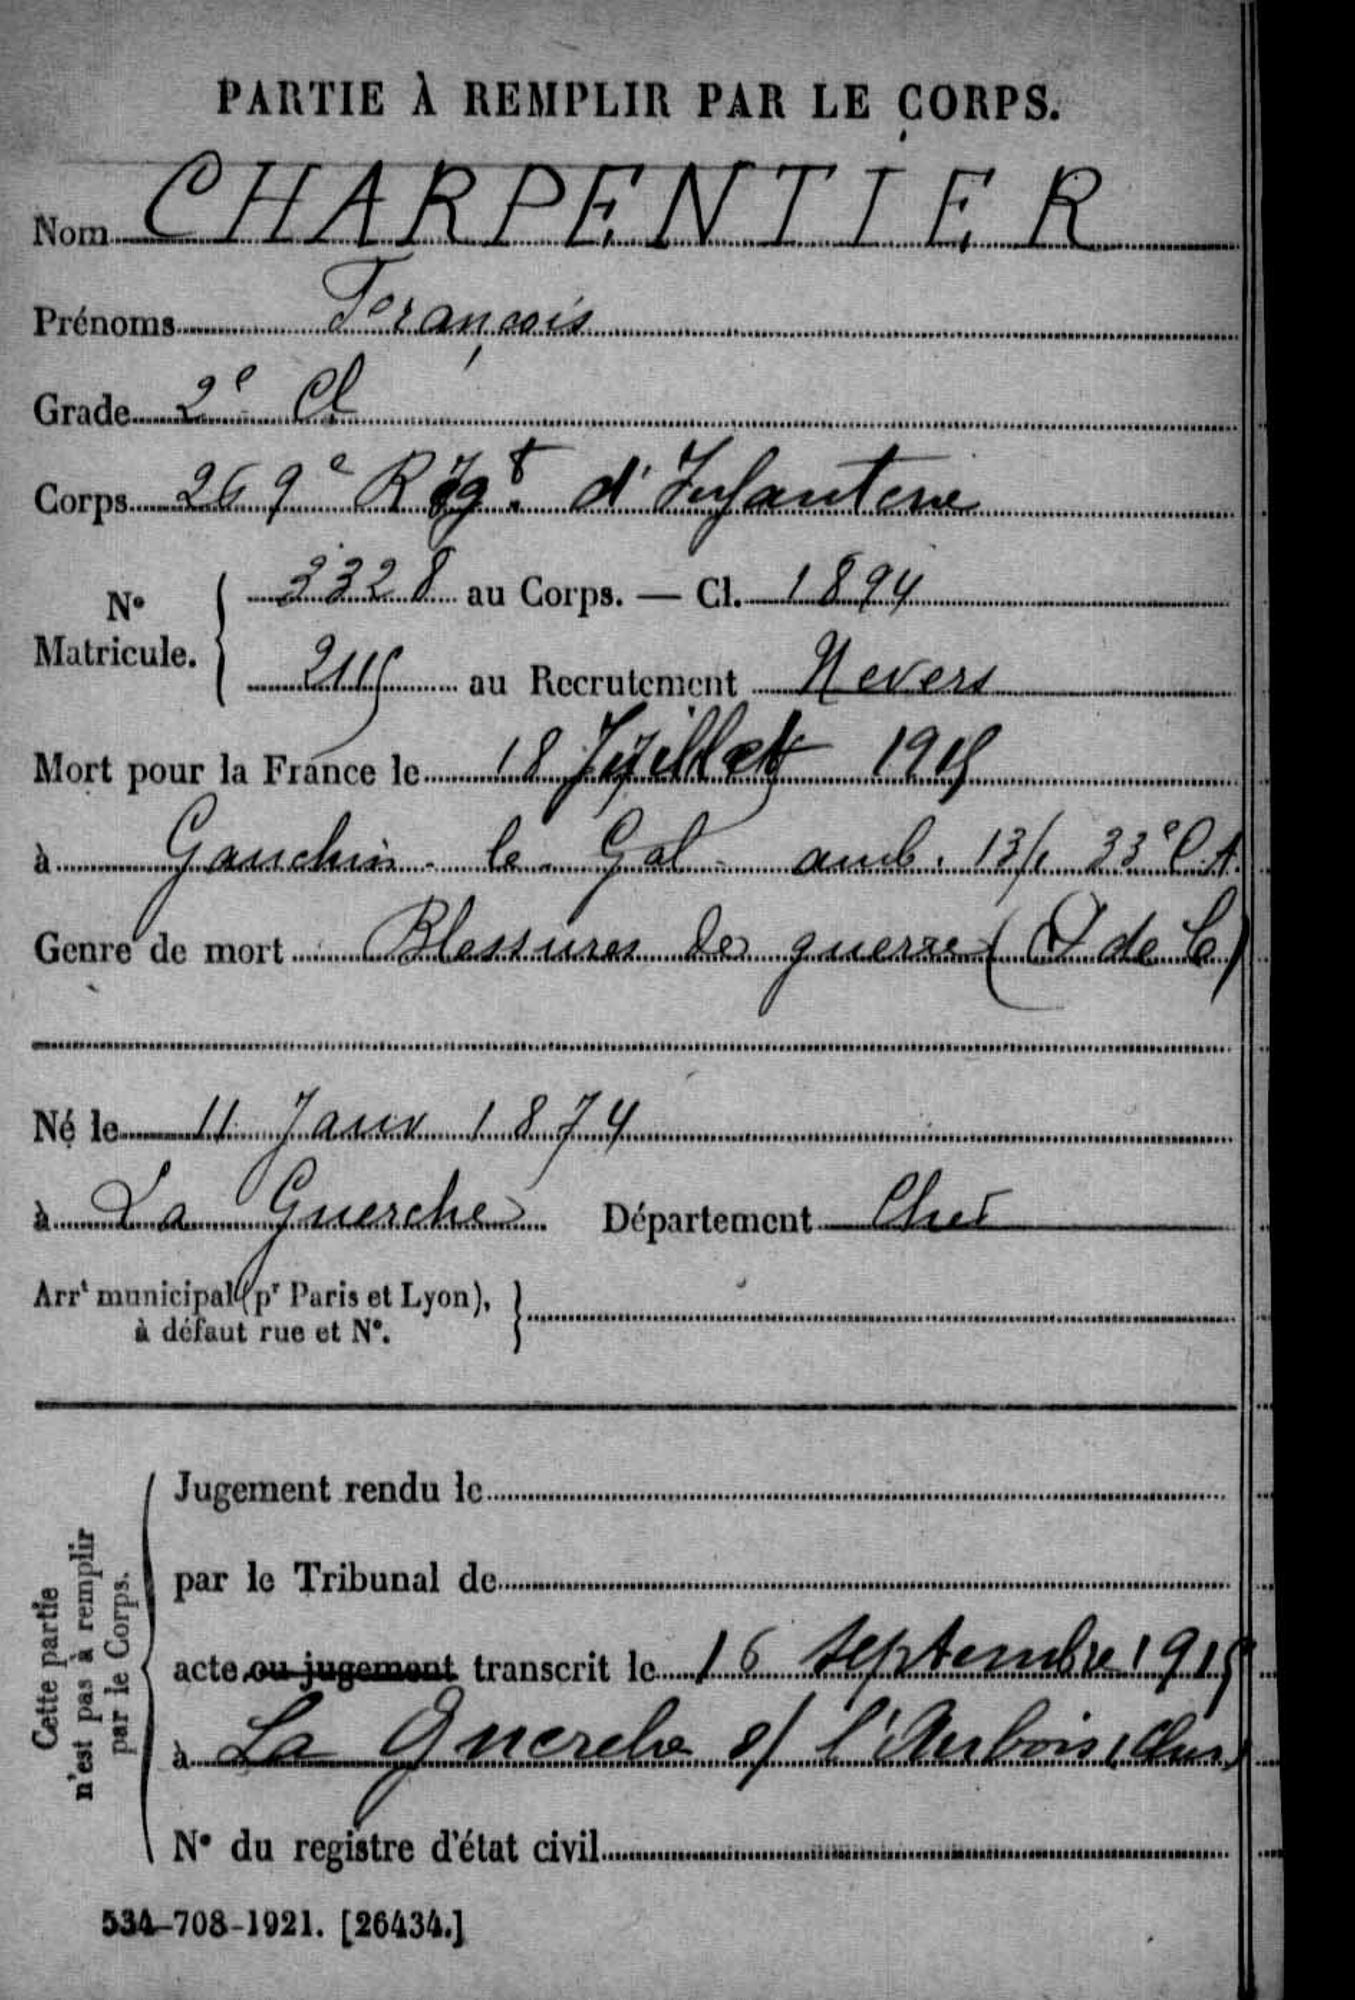 PARTIE À REMPLIR PAR LE CORPS.
Nom CHARPENTIER
Prénoms François
Grade 2e Cl
Corps 269e Régt d'Infanterie
No Matricule. 3328 au Corps. — Cl. 1894
2115 au Recrutement Nevers
Mort pour la France le 18 Juillet 1915
à Gauchin-le-Gal amb. 13/ 33e C.A.
Genre de mort Blessures de guerre ( de C)
Né le 11 Janv 1874
à La Guerche Département Cher
Arrt municipal (pr Paris et Lyon),
à défaut rue et No.
Cette partie
n'est pas à remplir
par le Corps.
Jugement rendu le
par le Tribunal de
acte ou jugement transcrit le 16 septembre 1915
à La Guerche s/ l'Aubois (Cher)
No du registre d'état civil
534-708-1921. [26434.]